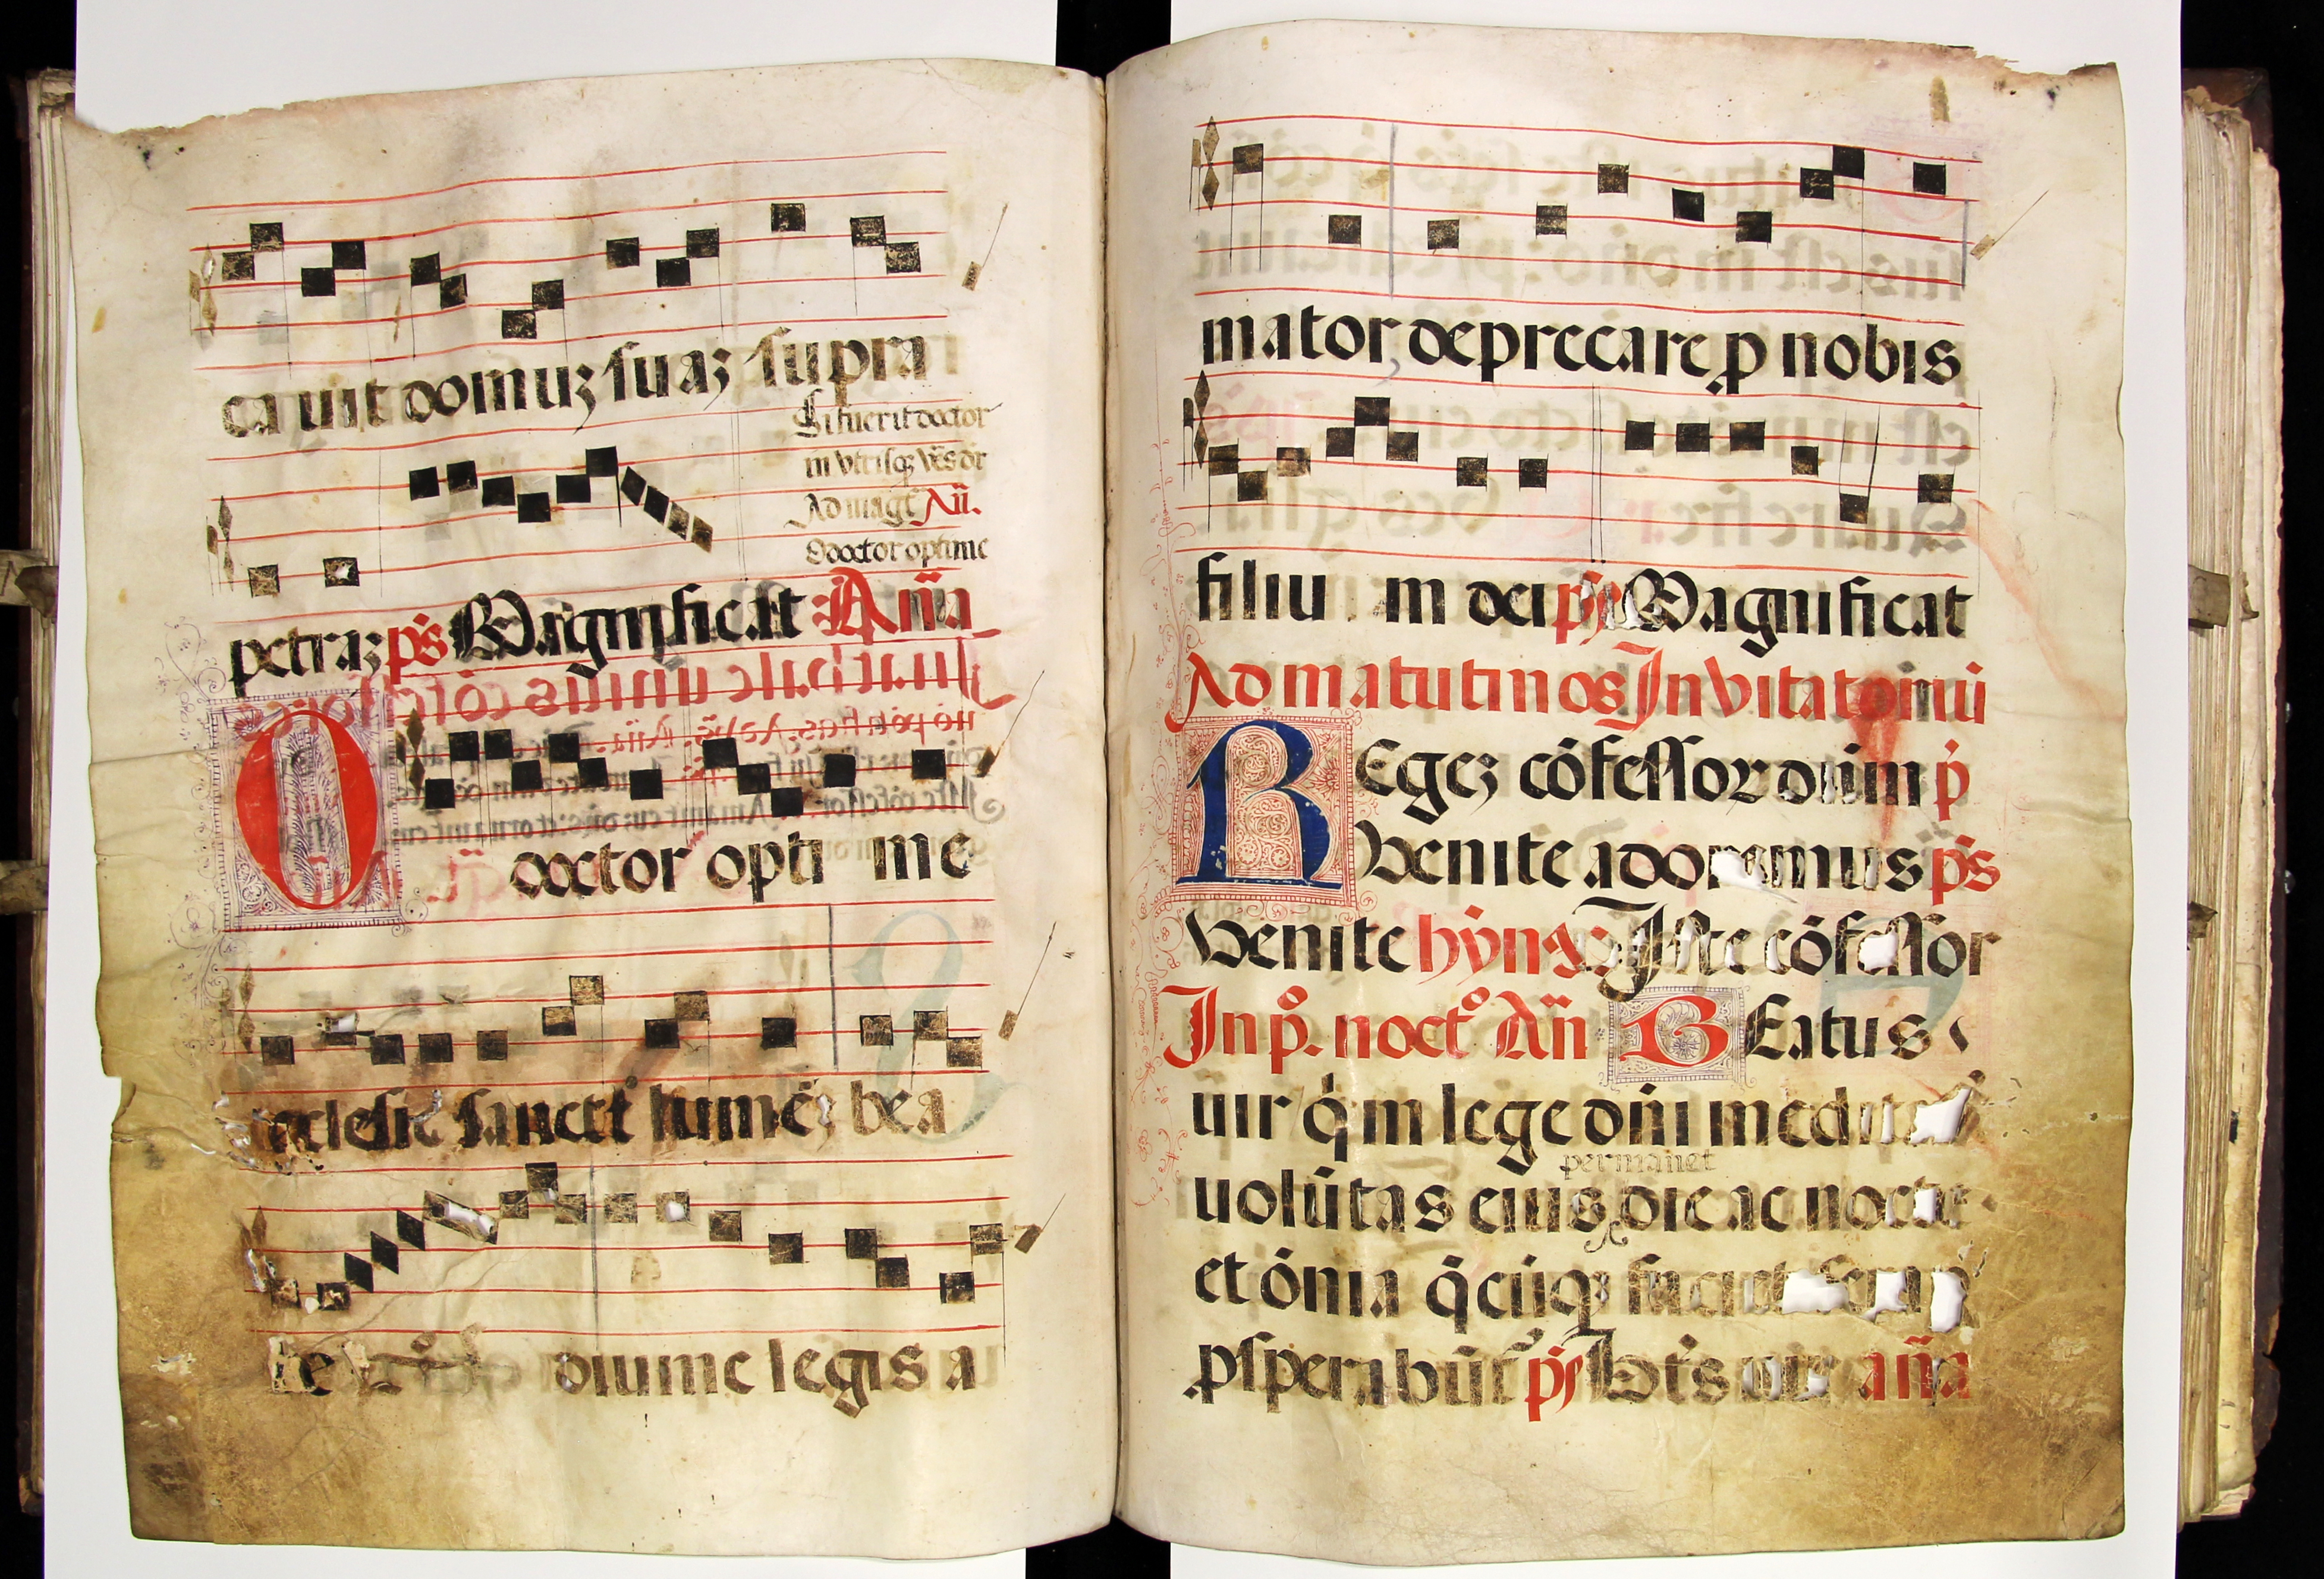 ca uit domuʒ suaʒ supra
Si fuerit doctor
in vtrisqʒ vēs dr̄
Ad magt̄ Añ.
O doctor optime
petraʒ ps̄ Magnificat Aña
O doctor opti me
ecclesie sancte lumēʒ bea
te diuine legis a
mator deprecare ꝓ nobis
filiu m dei ps̄ Magnificat
Ad matutinos Inuitatoriū
REgeʒ cōfessor dñm p̄
Venite adoremus ps̄
Venite hȳnꝰ Iste cōfessor
In p̊. noct̊ Añ BEatus
uir q̇ in lege dñi medita
permanet
uolūtas eius die ac nocte
et ōnia q̄cūqʒ faciet
ꝓsperabūt̄ ps̄ Bt̄s uir aña